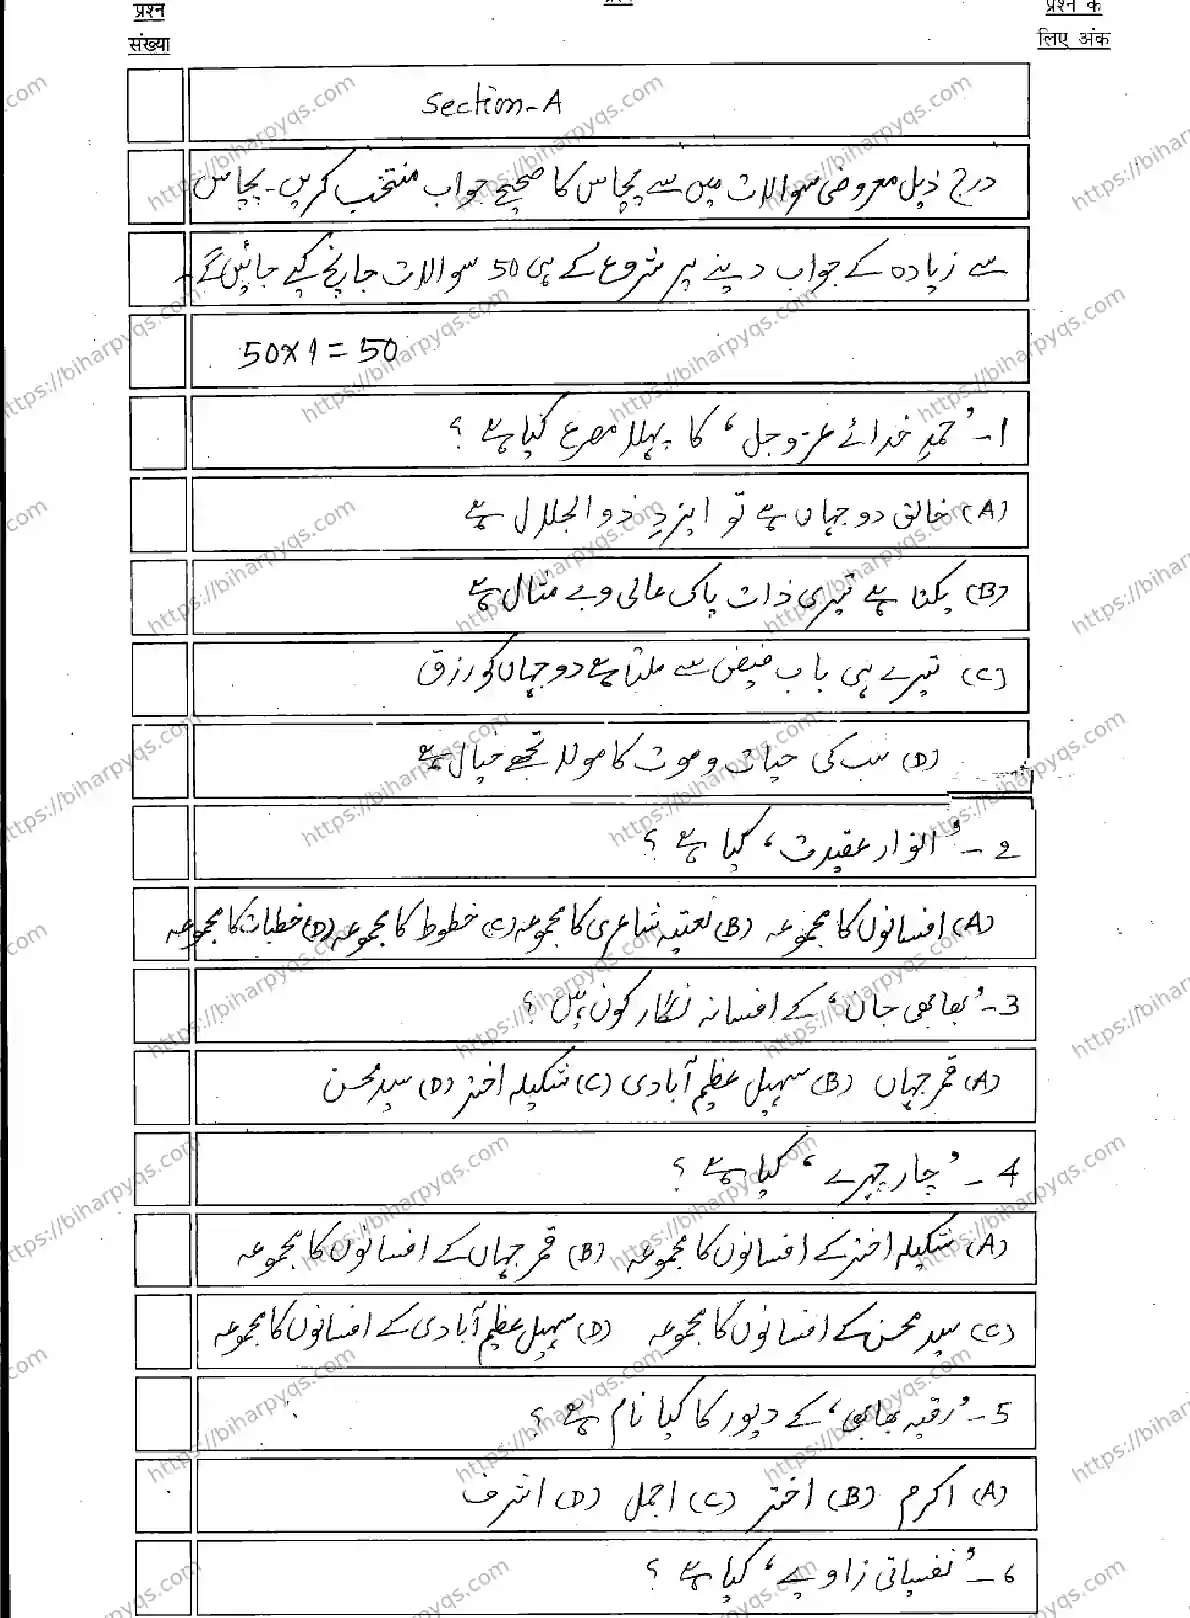 प्रश्न
संख्या
प्रश्न के
लिए अंक
Section-A
درج ذیل معروضی سوالات میں سے پچاس کا صحیح جواب منتخب کریں۔ پچاس
سے زیادہ کے جواب دینے پر شروع کے ہی 50 سوالات جانچ کیے جائیں گے۔
50x1=50
1- ’حمدِ خدائے عزوجل‘ کا پہلا مصرع کیا ہے؟
(A) خالق دو جہاں ہے تو ایزدِ ذوالجلال ہے
(B) یکتا ہے تیری ذات پاک عالی و بے مثال ہے
(C) تیرے ہی باب فیض سے ملتا ہے دو جہاں کو رزق
(D) سب کی حیات و موت کا مولا تجھے خیال ہے
2- ’انوار عقیدت‘ کیا ہے؟
(A) افسانوں کا مجموعہ (B) نعتیہ شاعری کا مجموعہ (C) خطوط کا مجموعہ (D) خطبات کا مجموعہ
3- ’بھابھی جان‘ کے افسانہ نگار کون ہیں؟
(A) قمر جہاں (B) سہیل عظیم آبادی (C) شکیلہ اختر (D) سید محسن
4- ’چار چہرے‘ کیا ہے؟
(A) شکیلہ اختر کے افسانوں کا مجموعہ (B) قمر جہاں کے افسانوں کا مجموعہ
(C) سید محسن کے افسانوں کا مجموعہ (D) سہیل عظیم آبادی کے افسانوں کا مجموعہ
5- ’رقیہ بھابھی‘ کے دیور کا کیا نام ہے؟
(A) اکرم (B) اختر (C) اجمل (D) اشرف
6- ’نفسیاتی زاویے‘ کیا ہے؟
https://biharpyqs.com